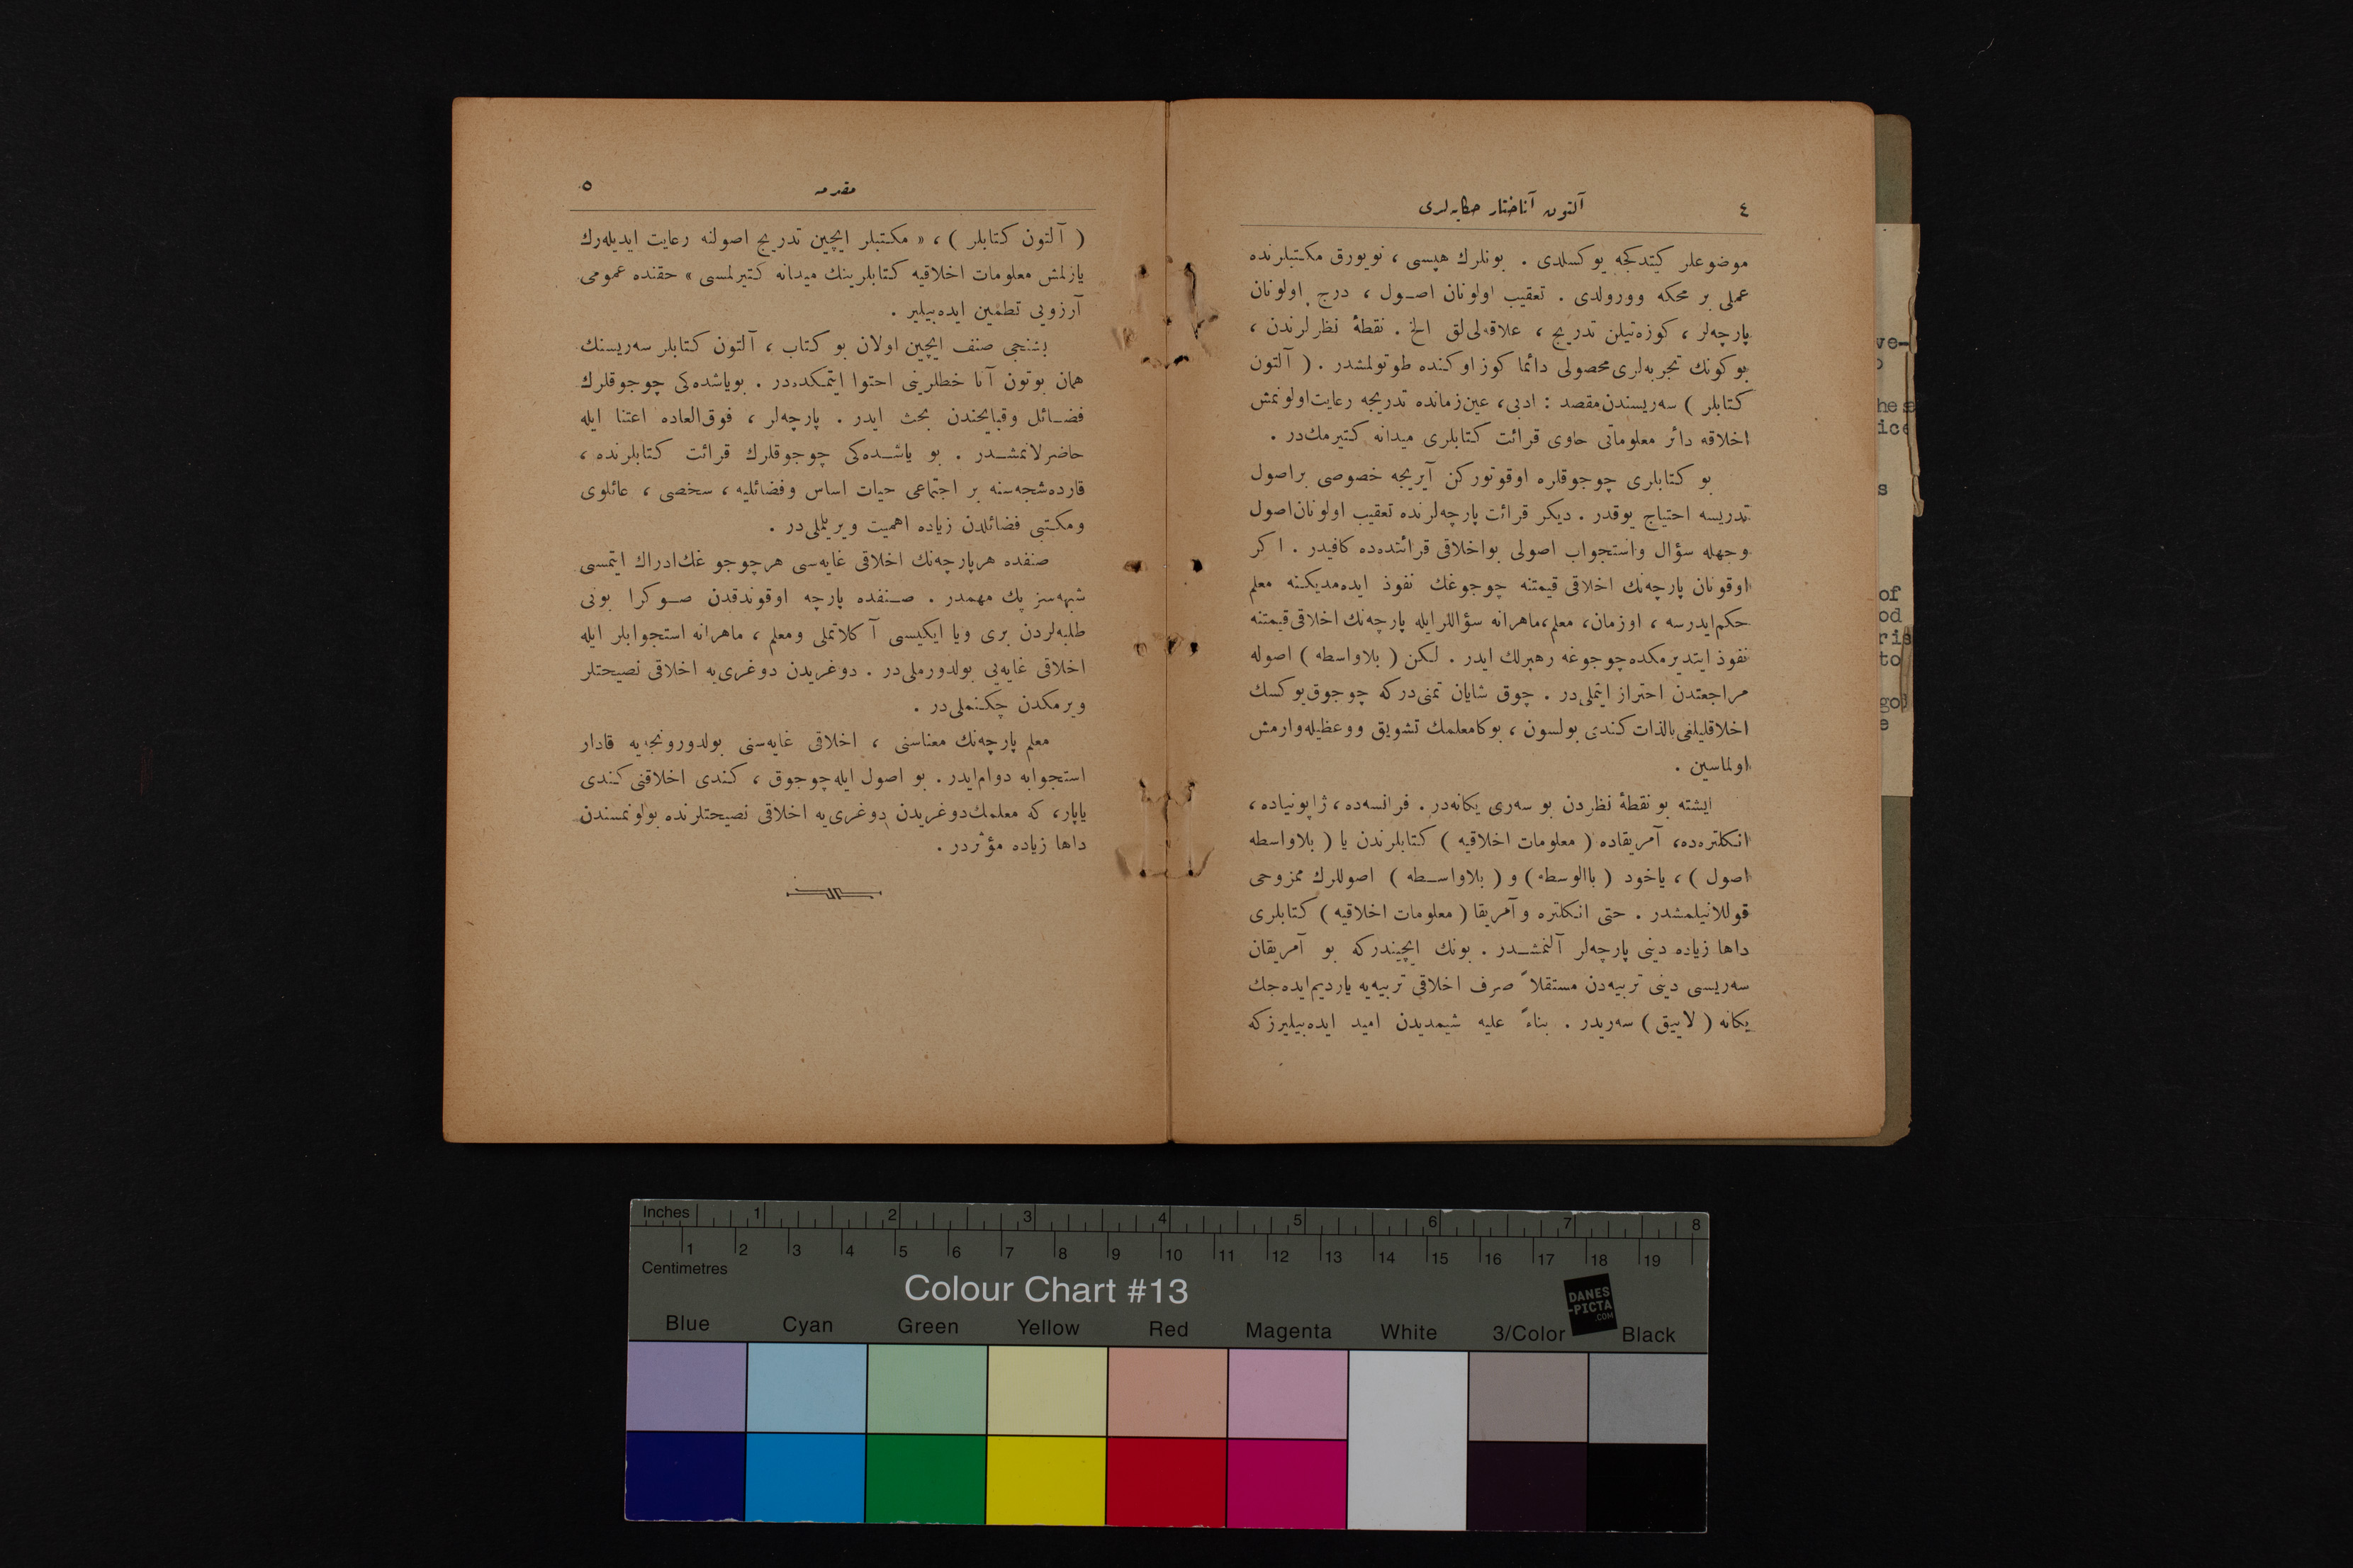 ٤
آلتون آناختار حكایه‌لری
موضوعلر كیتدكجه یوكسلدی . بونلرك هپسی ، نویورق مكتبلرنده
عملی بر محكه وورولدی . تعقیب اولونان اصـول ، درج اولونان
پارچه‌لر ، كوزه‌تیلن تدریج ، علاقه‌لی‌لق الخ . نقطۀ نظرلرندن ،
بوكونك تجربه‌لری محصولی دائما كوز اوكنده طوتولمشدر . ( آلتون
كتابلر ) سه‌ریسندن مقصد : ادبی، عین زمانده تدریجه رعایت اولونمش
اخلاقه دائر معلوماتی حاوی قرائت كتابلری میدانه كتیرمك‌در .
بو كتابلری چوجوقلره اوقوتوركن آیریجه خصوصی براصول
تدریسه احتیاج یوقدر . دیكر قرائت پارچه‌لرنده تعقیب اولونان اصول
وجهله سؤال واستجواب اصولی بواخلاقی قرائتده‌ده كافیدر . اكر
اوقونان پارچه‌نك اخلاقی قیمتنه چوجوغك نفوذ ایده‌مدیكنه معلم
حكم ایدرسه ، اوزمان، معلم،ماهرانه سؤاللر ایله پارچه‌نك اخلاقی قیمتنه
نفوذ ایتدیرمكده چوجوغه رهبرلك ایدر . لكن ( بلاواسطه ) اصوله
مراجعتدن احتراز ایتملی‌در . چوق شایان تمنی‌دركه چوجوق یوكسك
اخلاقلیلغی بالذات كندی بولسون ، بوكا معلمك تشویق ووعظیله وارمش
اولماسین .
ایشته بو نقطۀ نظردن بو سه‌ری یكانه‌در . فرانسه‌ده، ژاپونیاده،
انكلتره‌ده، آمریقاده ( معلومات اخلاقیه ) كتابلرندن یا ( بلاواسطه
اصول ) ، یاخود ( باالوسطه ) و ( بلاواسـطه ) اصوللرك ممزوجی
قوللانیلمشدر . حتی انكلتره و آمریقا ( معلومات اخلاقیه ) كتابلری
داها زیاده دینی پارچه‌لر آلنمشـدر . بونك ایچیندركه بو آمریقان
سه‌ریسی دینی تربیه‌دن مستقلاً صرف اخلاقی تربیه‌یه یاردیم ایده‌جك
یكانه ( لاییق ) سه‌ریدر . بناءً علیه شیمدیدن امید ایده‌بیلیرزكه
مقدمه
٥
( آلتون كتابلر ) ، « مكتبلر ایچین تدریج اصولنه رعایت ایدیله‌رك
یازلمش معلومات اخلاقیه كتابلرینك میدانه كتیرلمسی » حقنده عمومی
آرزویی تطمین ایده‌بیلیر .
بشنجی صنف ایچین اولان بو كتاب ، آلتون كتابلر سه‌ریسنك
همان بوتون آنا خطلرینی احتوا ایتمكده‌در . بویاشده‌كی چوجوقلرك
فضـائل وقبایحندن بحث ایدر . پارچه‌لر ، فوق‌العاده اعتنا ایله
حاضرلانمشـدر . بو یاشـده‌كی چوجوقلرك قرائت كتابلرنده ،
قارده‌شجه‌سنه بر اجتماعی حیات اساس وفضائلیه ، سخصی ، عائلوی
ومكتبی فضائلدن زیاده اهمیت ویریلملی‌در .
صنفده هرپارچه‌نك اخلاقی غایه‌سی هرچوجوغك ادراك ایتمسی
شبهه‌سز پك مهمدر . صـنفده پارچه اوقوندقدن صـوكرا بونی
طلبه‌لردن بری ویا ایكیسی آكلاتملی ومعلم ، ماهرانه استجوابلر ایله
اخلاقی غایه‌یی بولدورملی‌در . دوغریدن دوغری‌یه اخلاقی نصیحتلر
ویرمكدن چكنملی‌در .
معلم پارچه‌نك معناسنی ، اخلاقی غایه‌سنی بولدورونجه‌یه قادار
استجوابه دوام ایدر . بو اصول ایله چوجوق ، كندی اخلاقنی كندی
یاپار، كه معلمك دوغریدن دوغری‌یه اخلاقی نصیحتلرنده بولونمسندن
داها زیاده مؤثردر .
ve-
he
ice
s
of
od
ris
to
go
e
Inches 1 2 3 4 5 6 7 8
1 2 3 4 5 6 7 8 9 10 11 12 13 14 15 16 17 18 19
Centimetres
Colour Chart #13
DANES
-PICTA
.COM
Blue Cyan Green Yellow Red Magenta White 3/Color Black